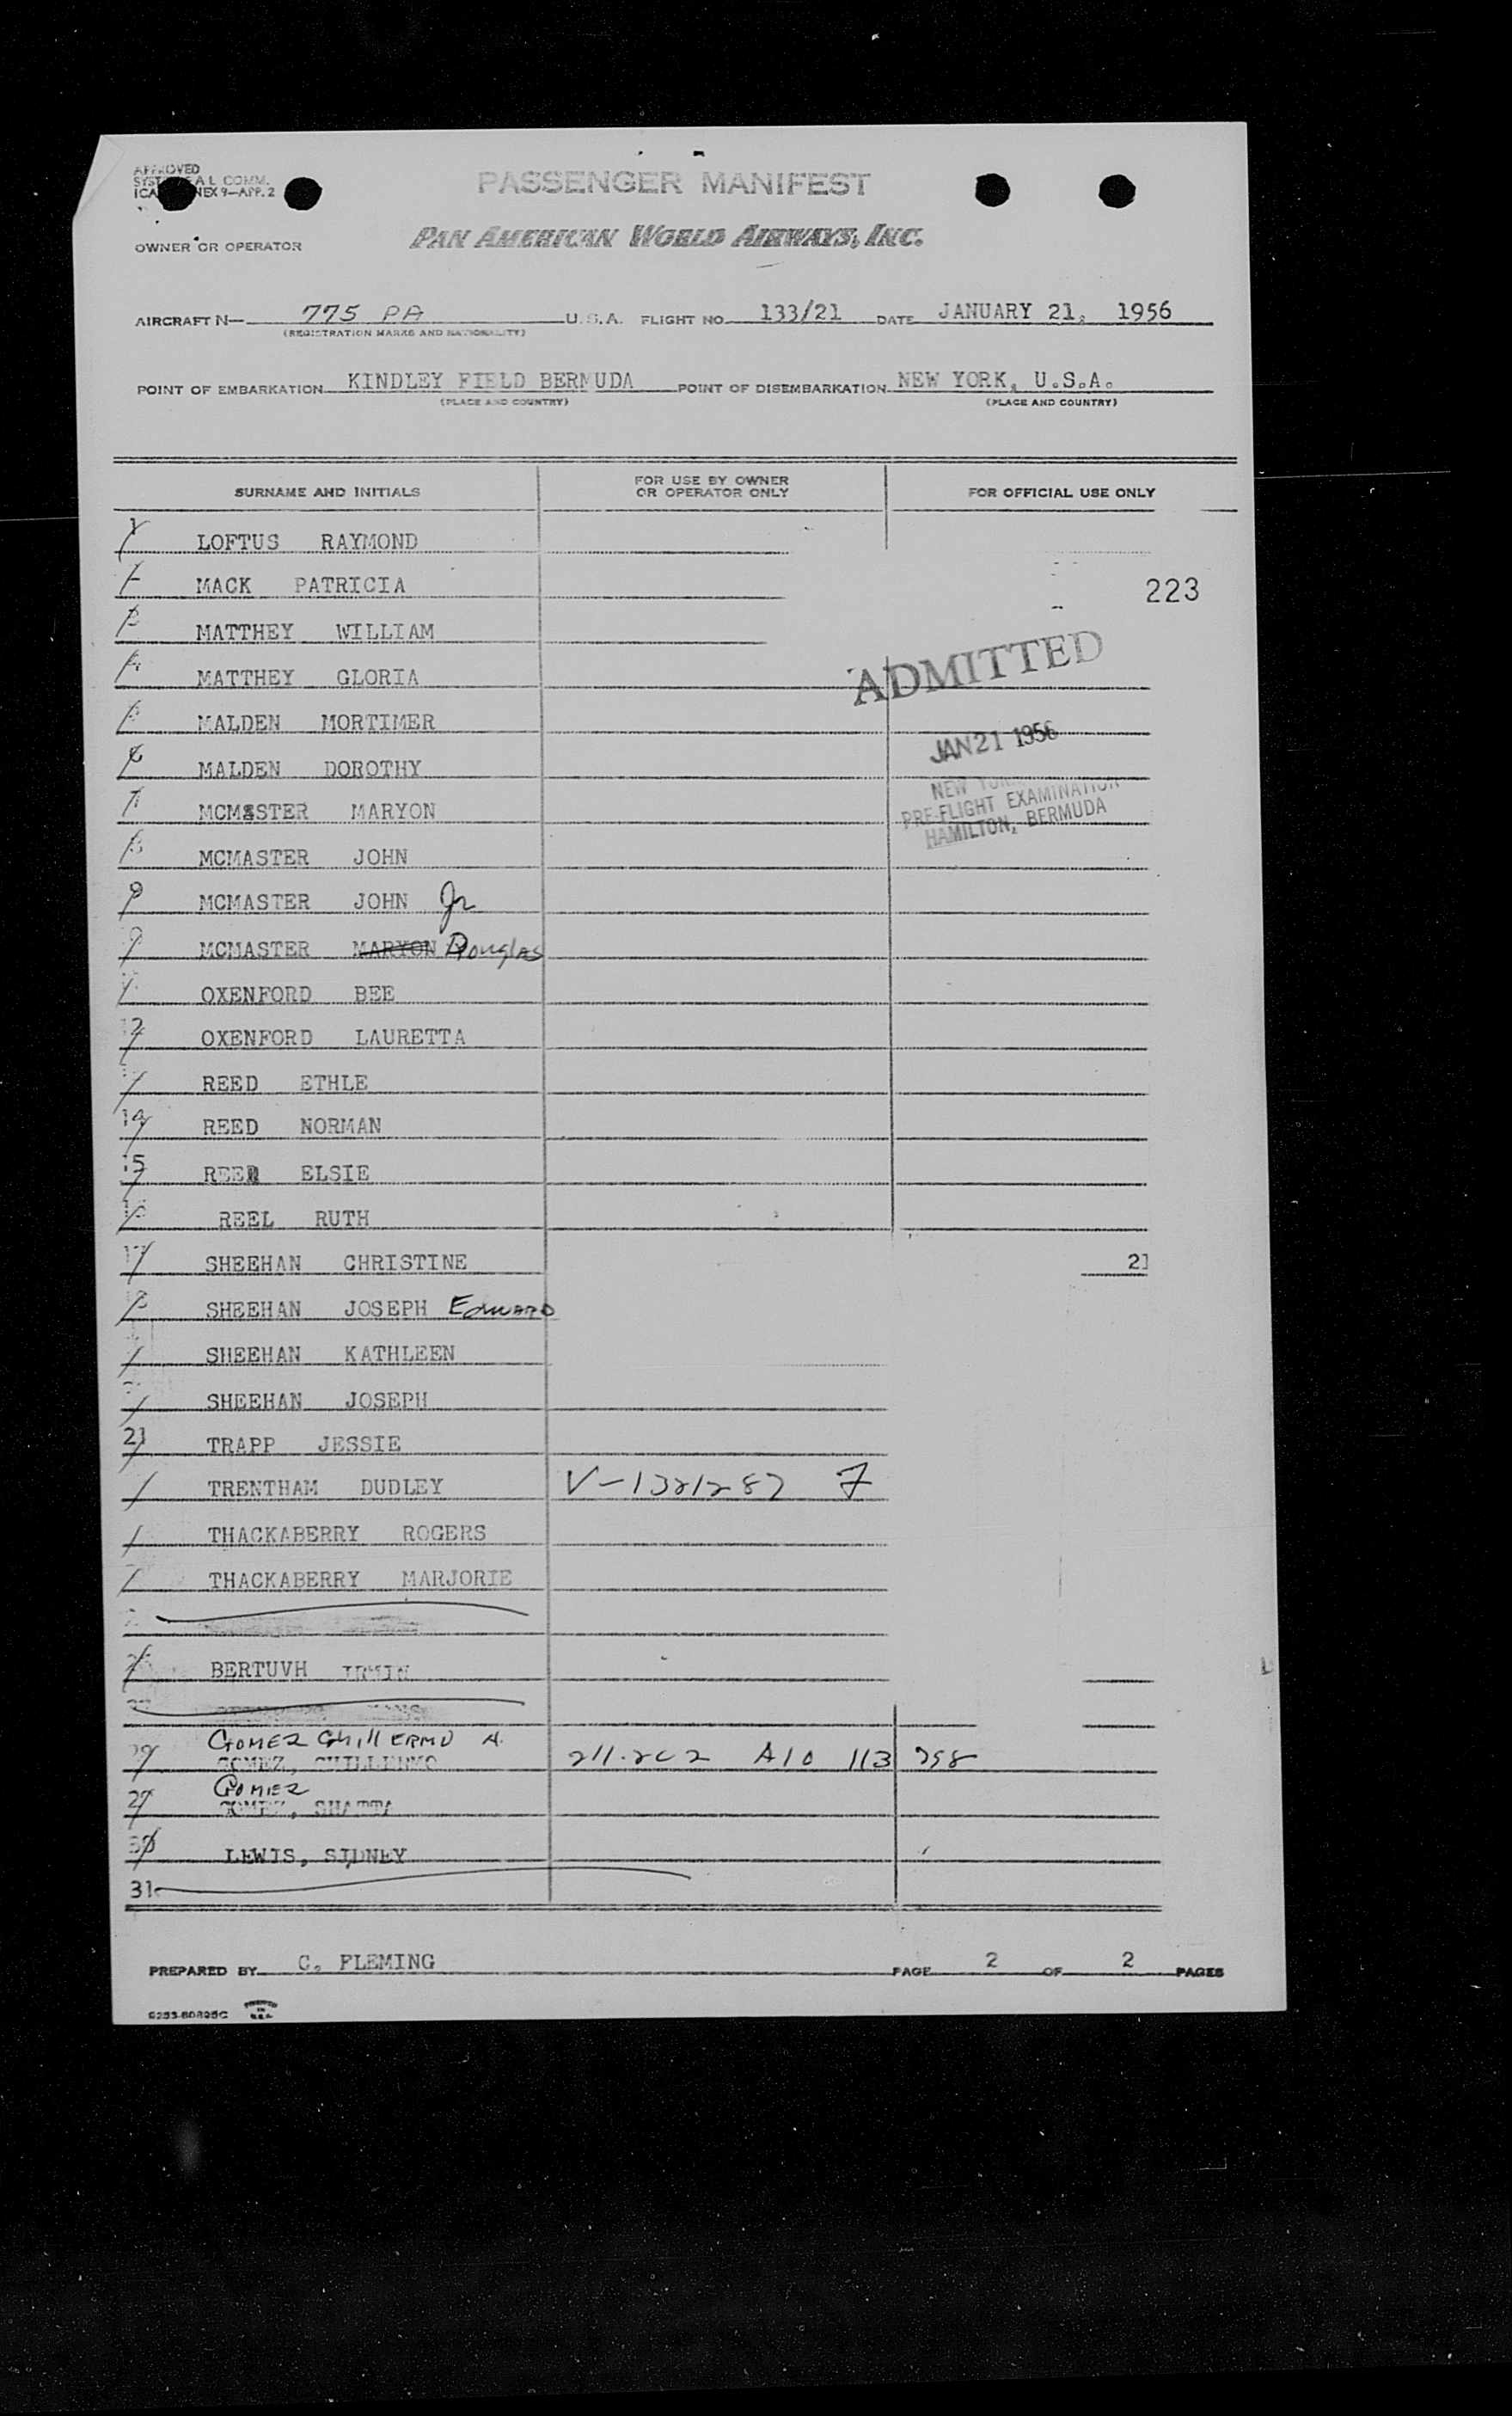 APPROVED
SYST AL COMM.
ICA NEX 9-APP. 2
PASSENGER MANIFEST
OWNER OR OPERATOR PAN AMERICAN WORLD AIRWAYS, INC.
AIRCRAFT N— 775 PA U.S.A. FLIGHT NO. 133/21 DATE JANUARY 21, 1956
(REGISTRATION MARKS AND NATIONALITY)
POINT OF EMBARKATION KINDLEY FIELD BERMUDA POINT OF DISEMBARKATION NEW YORK, U.S.A.
(PLACE AND COUNTRY) (PLACE AND COUNTRY)
SURNAME AND INITIALS FOR USE BY OWNER OR OPERATOR ONLY FOR OFFICIAL USE ONLY
1 LOFTUS RAYMOND
MACK PATRICIA 223
MATTHEY WILLIAM
MATTHEY GLORIA ADMITTED
MALDEN MORTIMER JAN 21 1956
6 MALDEN DOROTHY NEW YORK
7 MCMASTER MARYON PRE-FLIGHT EXAMINATION
8 MCMASTER JOHN HAMILTON, BERMUDA
9 MCMASTER JOHN Jr
MCMASTER MARYON Douglas
OXENFORD BEE
12 OXENFORD LAURETTA
REED ETHLE
14 REED NORMAN
15 REED ELSIE
16 REEL RUTH
17 SHEEHAN CHRISTINE 21
18 SHEEHAN JOSEPH EDWARD
SHEEHAN KATHLEEN
SHEEHAN JOSEPH
21 TRAPP JESSIE
TRENTHAM DUDLEY V-1321287 7
THACKABERRY ROGERS
THACKABERRY MARJORIE
BERTUVH IRMIN
GOMEZ GUILLERMO A.
GOMEZ, GUILLERMO 211.202 A10 113 798
GOMEZ
29 GOMEZ, SHATTA
30 LEWIS, SIDNEY
31
PREPARED BY C. FLEMING PAGE 2 OF 2 PAGES
PRINTED IN U.S.A.